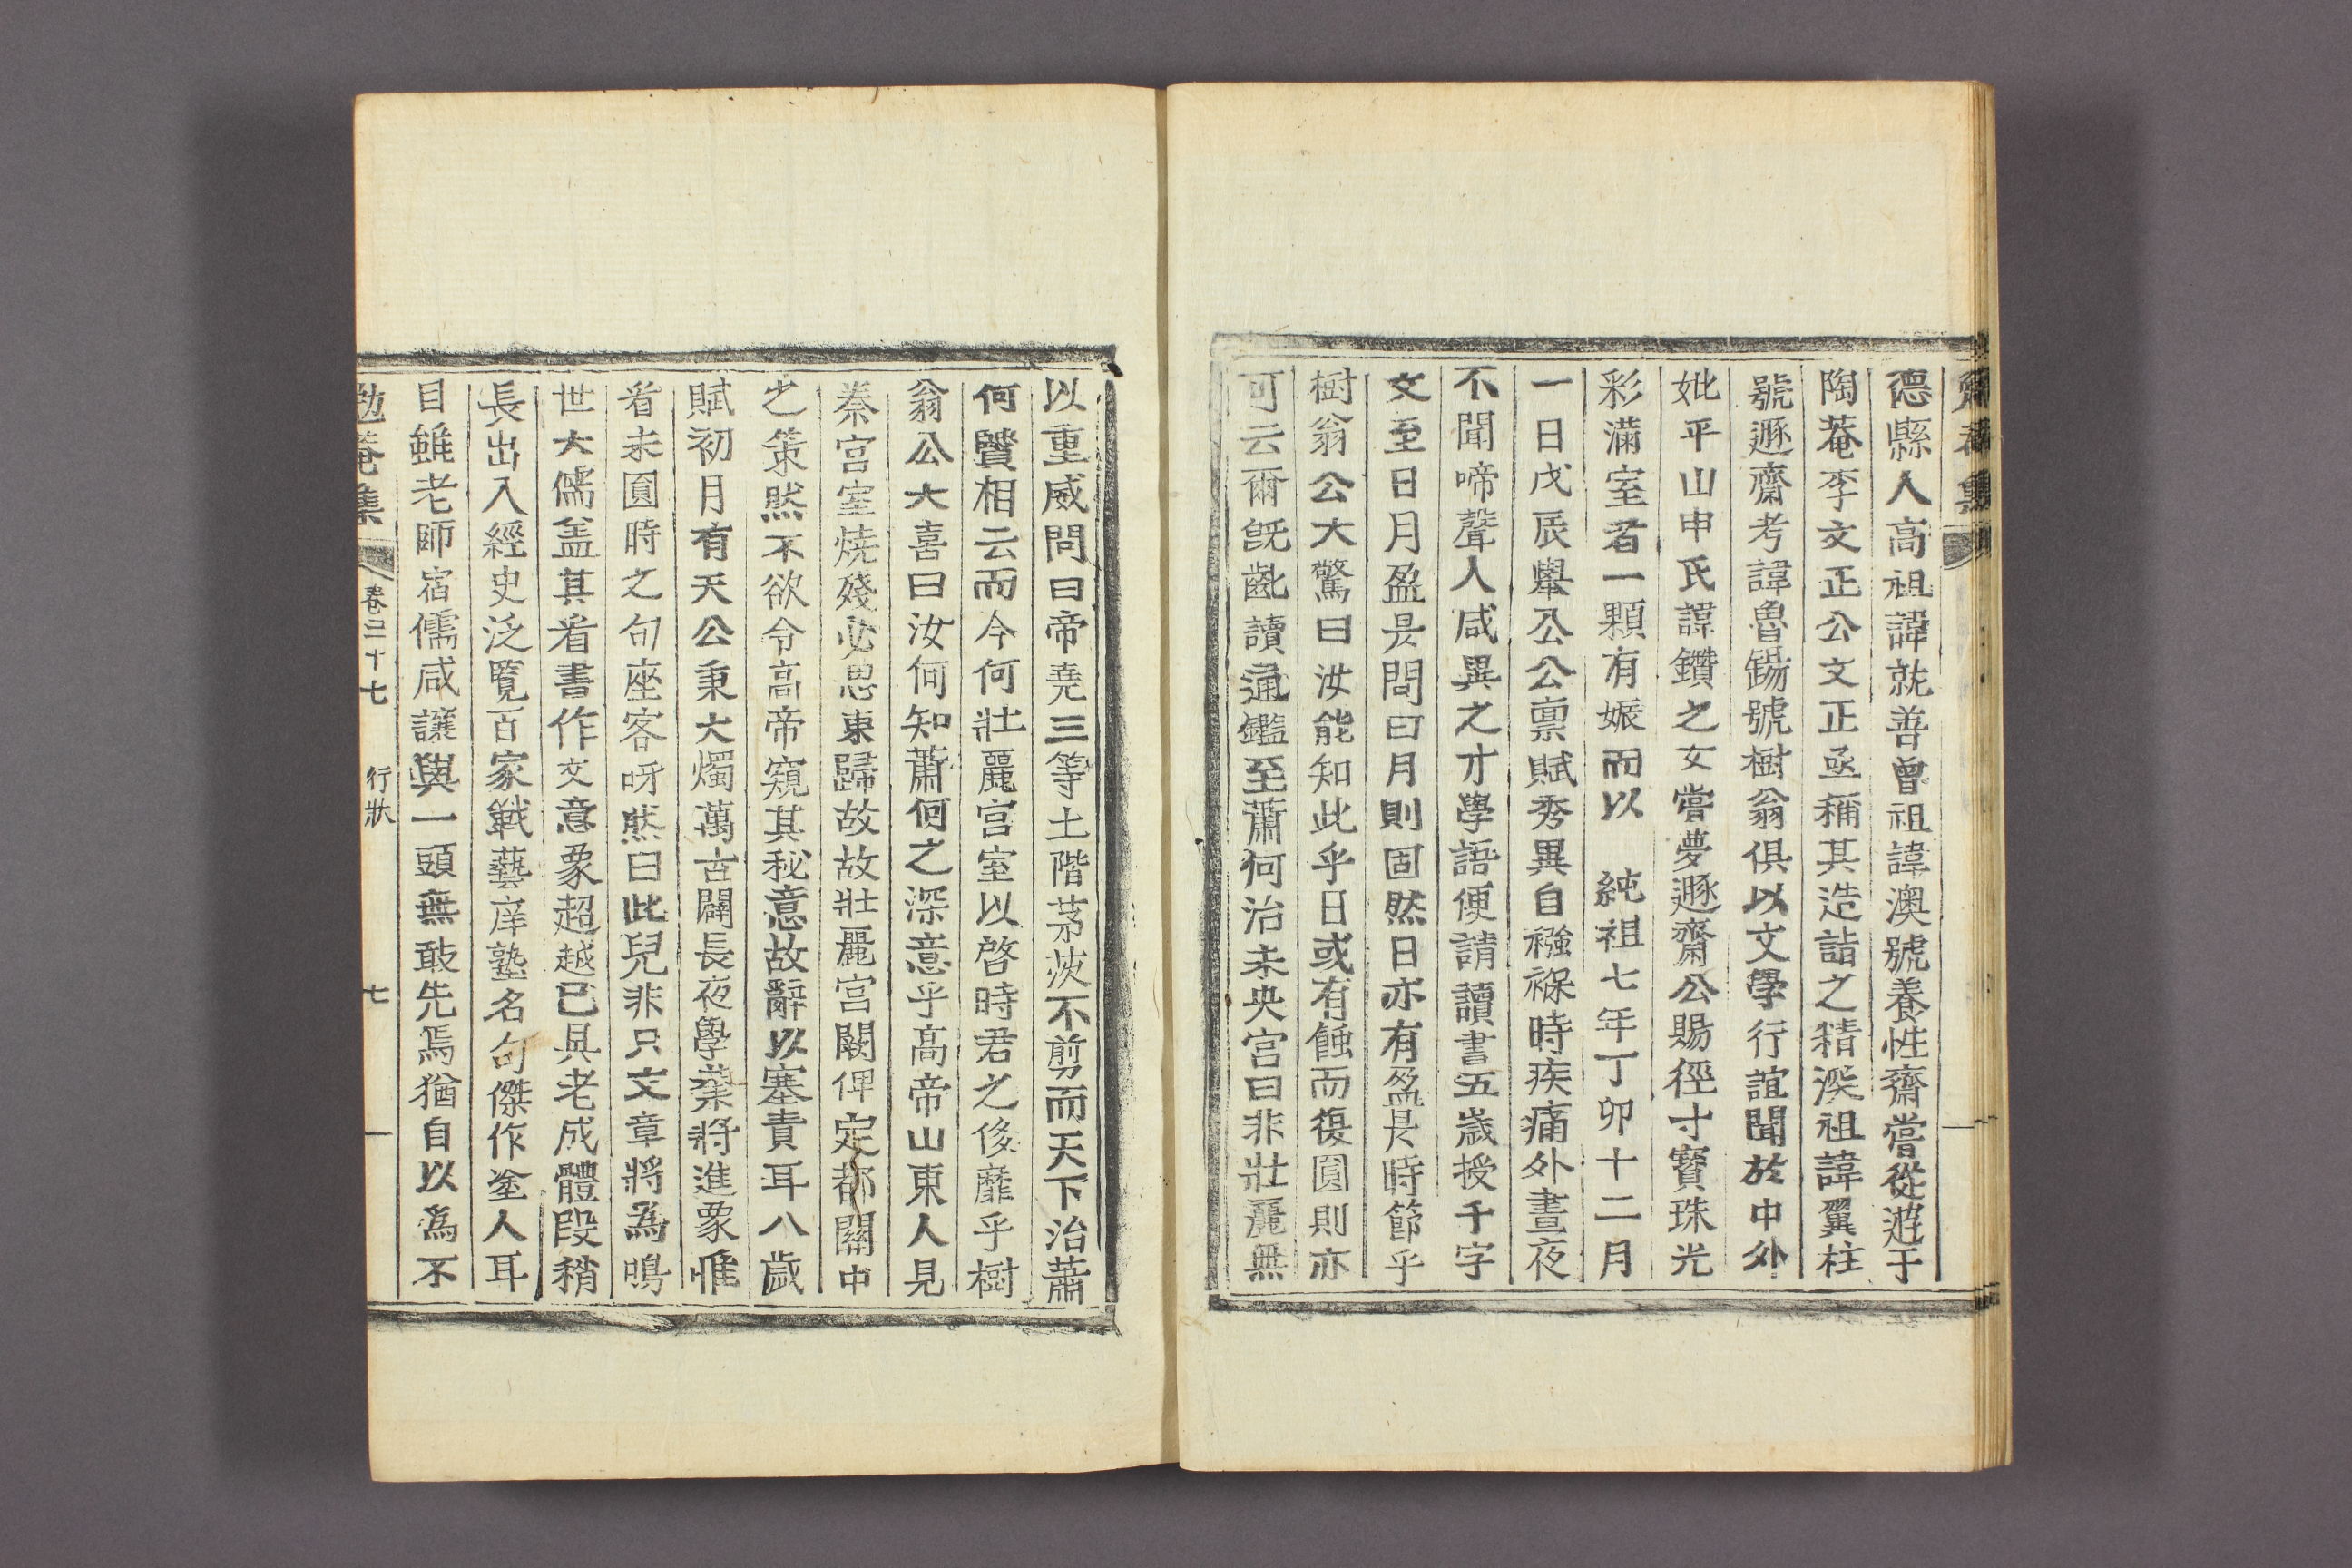 德縣人高祖諱就善曾祖諱澳號養性齋嘗從遊于
陶菴李文正公文正亟稱其造詣之精深祖諱翼柱
號遯齋考諱魯錫號樹翁俱以文學行誼聞於中外
妣平山申氏諱鑽之女嘗夢遯齋公賜徑寸寶珠光
彩滿室者一顆有娠而以 純祖七年丁卯十二月
一日戊辰擧公公稟賦秀異自襁褓時疾痛外晝夜
不聞啼聲人咸異之才學語便請讀書五歲授千字
文至日月盈昃問曰月則固然日亦有盈昃時節乎
樹翁公大驚曰汝能知此乎日或有蝕而復圓則亦
可云爾旣齔讀通鑑至蕭何治未央宮曰非壯麗無
以重威問曰帝堯三等土階茅茨不剪而天下治蕭
何賢相云而今何壯麗宮室以啓時君之侈靡乎樹
翁公大喜曰汝何知蕭何之深意乎高帝山東人見
秦宮室燒殘必思東歸故故壯麗宮闕俾定都關中
之策然不欲令高帝窺其秘意故辭以塞責耳八歲
賦初月有天公秉大燭萬古闢長夜學業將進象惟
看未圓時之句座客呀然曰此兒非只文章將為鳴
世大儒盖其看書作文意象超越已具老成體段稍
長出入經史泛覽百家戰藝庠塾名句傑作塗人耳
目雖老師宿儒咸讓與一頭無敢先焉猶自以為不
勉菴集 卷二十七 行狀 七